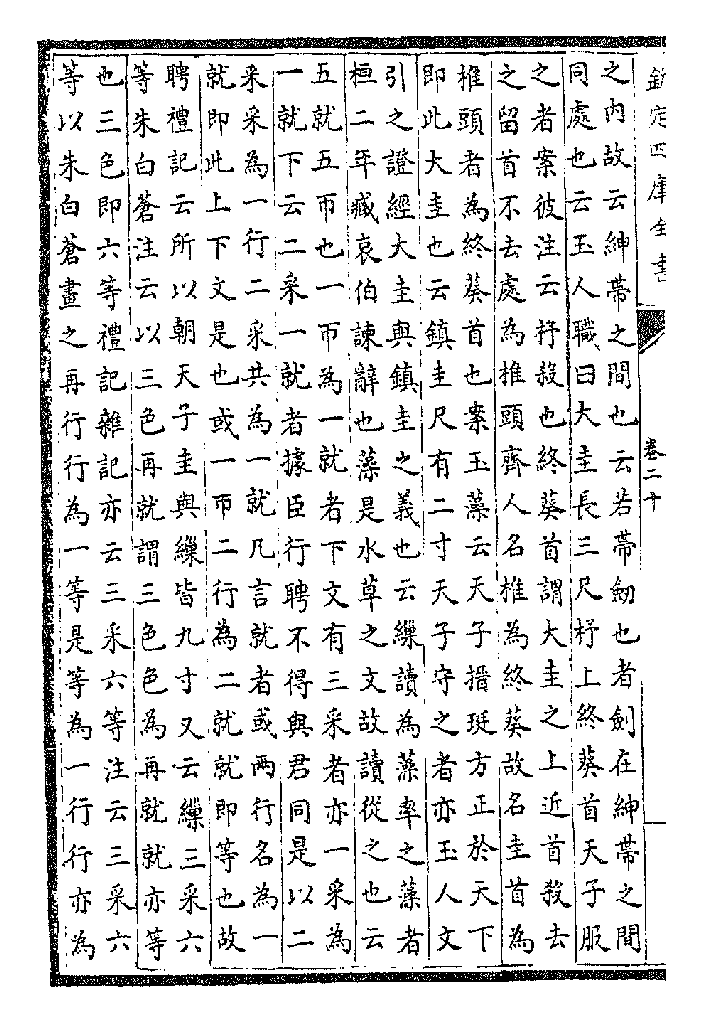 欽定四庫全書
卷二十
之内故云紳帶之間也云若帶劒也者劍在紳帶之間
同處也云玉人職曰大圭長三尺杼上終葵首天子服
之者案彼注云杼殺也終葵首謂大圭之上近首殺去
之留首不去處為椎頭齊人名椎為終葵故名圭首為
椎頭者為終葵首也案玉藻云天子搢珽方正於天下
即此大圭也云鎮圭尺有二寸天子守之者亦玉人文
引之證經大圭與鎮圭之義也云繅讀為藻率之藻者
桓二年臧哀伯諫辭也藻是水草之文故讀從之也云
五就五帀也一帀為一就者下文有三采者亦一采為
一就下云二采一就者據臣行聘不得與君同是以二
采采為一行二采共為一就凡言就者或兩行名為一
就即此上下文是也或一帀二行為二就就即等也故
聘禮記云所以朝天子圭與繅皆九寸又云繅三采六
等朱白蒼注云以三色再就謂三色色為再就就亦等
也三色即六等禮記雜記亦云三采六等注云三采六
等以朱白蒼畫之再行行為一等是等為一行行亦為